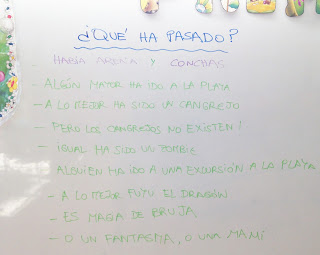 ¿QUÉ HA PASADO?
- HABÍA ARENA Y CONCHAS
- ALGÚN MAYOR HA IDO A LA PLAYA
- A LO MEJOR HA SIDO UN CANGREJO
- PERO LOS CANGREJOS NO EXISTEN!
- IGUAL HA SIDO UN ZOMBIE
- ALGUIEN HA IDO A UNA EXCURSIÓN A LA PLAYA
- A LO MEJOR FUYU EL DRAGÓN
- ES MAGIA DE BRUJA
- O UN FANTASMA, O UNA MAMÍ